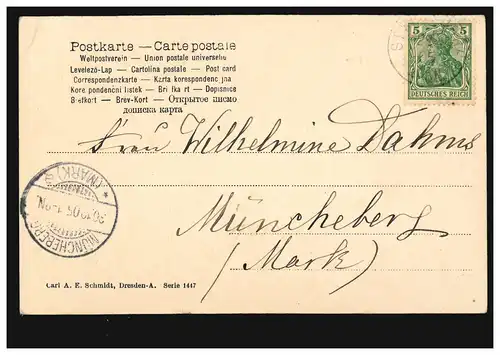 Postkarte — Carte postale
Weltpostverein — Union postale universelle
Levelező-Lap — Cartolina postale — Post card
Correspondenzkarte — Karta korespondencyjna
Korespondenční lístek — Brifkart — Dopisnice
Brefkort — Brev-Kort — Открытое письмо
дописна карта
5 5
DEUTSCHES REICH
Frau Wilhelmine Dahms
Müncheberg
(Mark)
* (MARK)
30 05
MÜNCHEBERG
Carl A. E. Schmidt, Dresden-A. Serie 1447